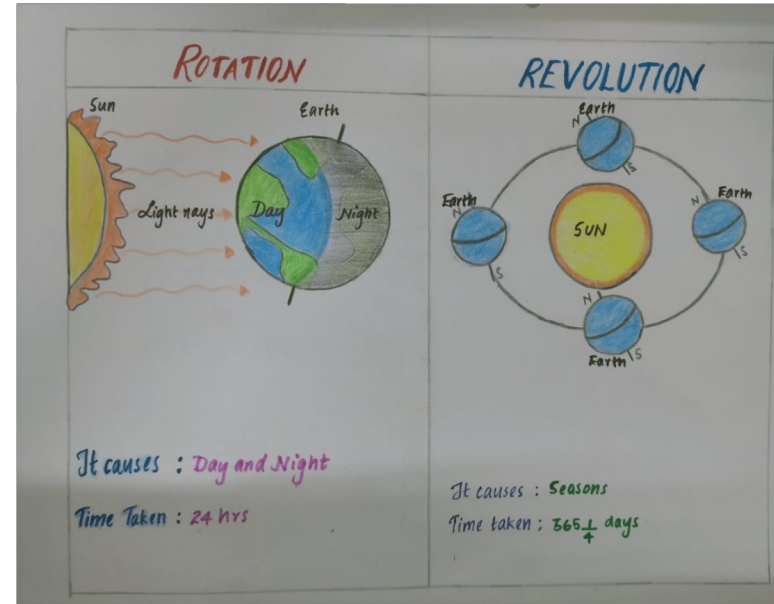 ROTATION
Sun
Earth
Light rays
Day
Night
It causes : Day and Night
Time Taken : 24 hrs
REVOLUTION
Earth
N
S
Earth
N
S
SUN
Earth
N
S
N
Earth
S
It causes : Seasons
Time taken : 365 1/4 days